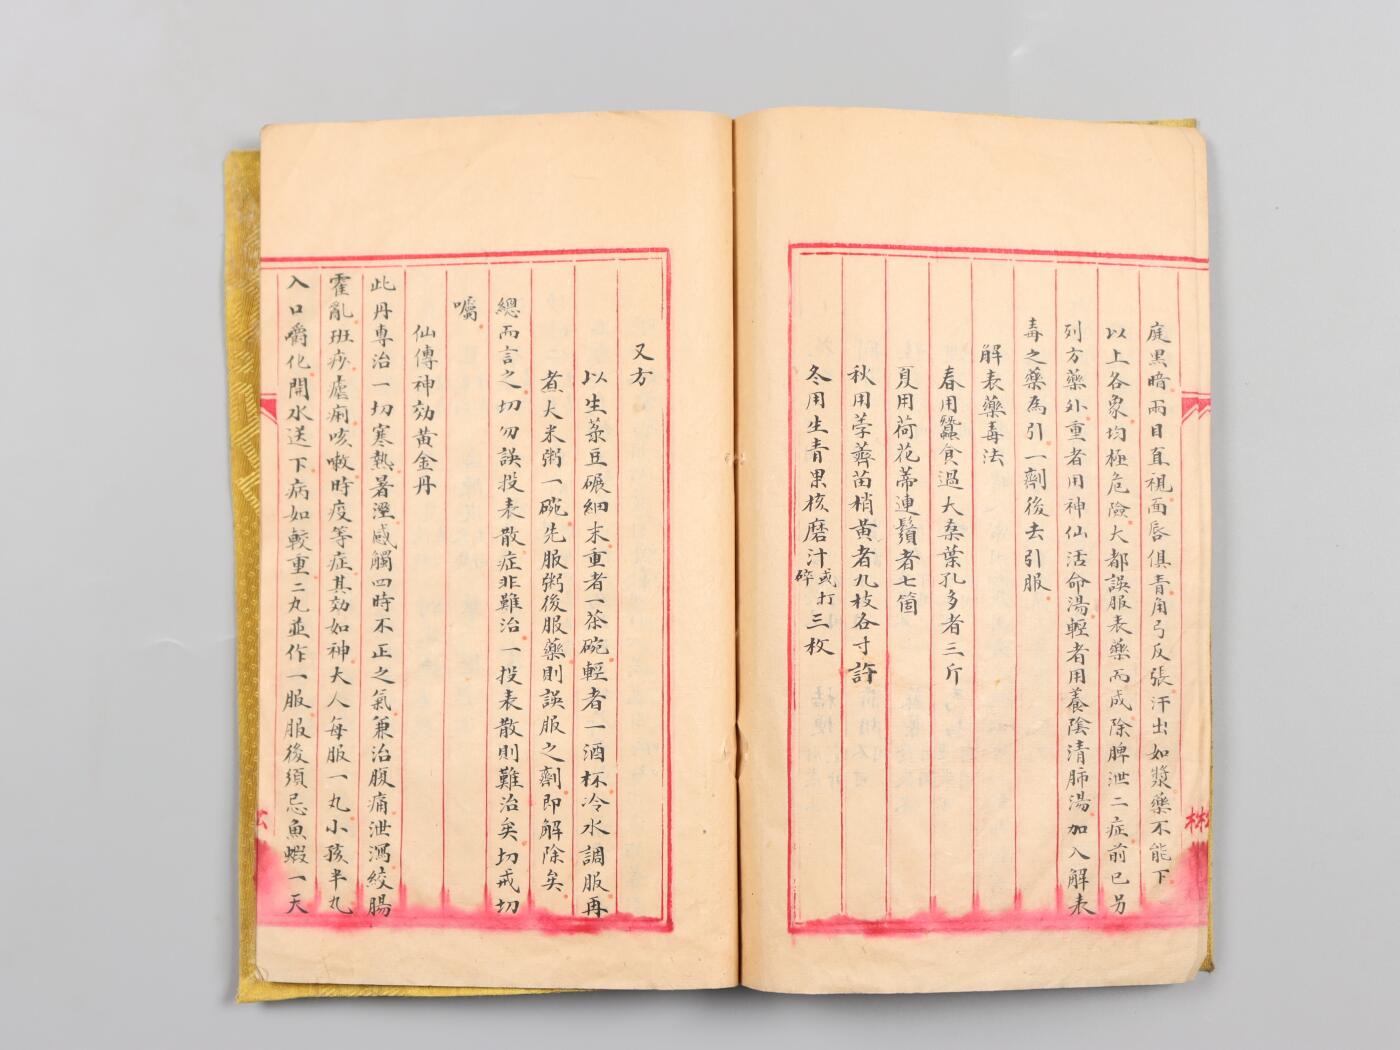 庭黑暗兩目直視面唇俱青角弓反張汗出如漿藥不能下
以上各象均極危險大都誤服表藥而成除脾泄二症前已另
列方藥外重者用神仙活命湯輕者用養陰清肺湯加入解表
毒之藥為引一劑後去引服
解表藥毒法
春用蠶食過大桑葉孔多者三斤
夏用荷花蒂連鬚者七箇
秋用荸薺苗梢黄者九枝各寸許
冬用生青果核磨汁或打碎三枚
又方
以生菉豆碾細末重者一茶碗輕者一酒杯冷水調服再
煮大米粥一碗先服粥後服藥則誤服之劑即解除矣
總而言之切勿誤投表散症非難治一投表散則難治矣切戒切
囑
仙傳神効黄金丹
此丹專治一切寒熱暑溼感觸四時不正之氣兼治腹痛泄瀉絞腸
霍亂班痧瘧痢咳嗽時疫等症其効如神大人每服一丸小孩半丸
入口嚼化開水送下病如較重二丸並作一服服後須忌魚蝦一天